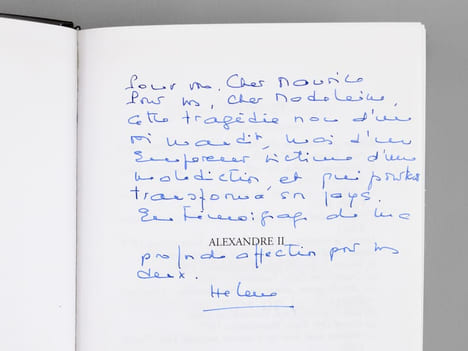 Pour vous, Cher Maurice
Pour vous, Cher Madeleine,
cette tragédie non d'un
roi maudit, mais d'un
Empereur victime d'une
malédiction et qui pourtant
transforma son pays.
En témoignage de ma
ALEXANDRE II
profonde affection pour vous
deux.
Hélène